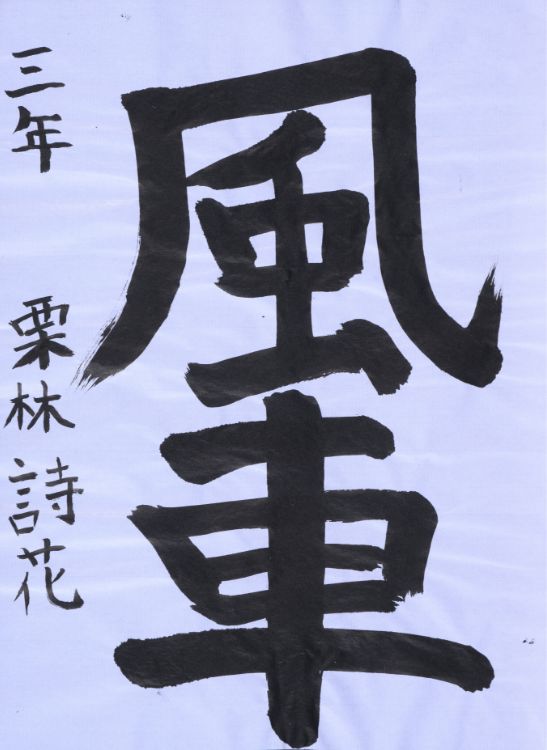 風車
三年 栗林 詩花